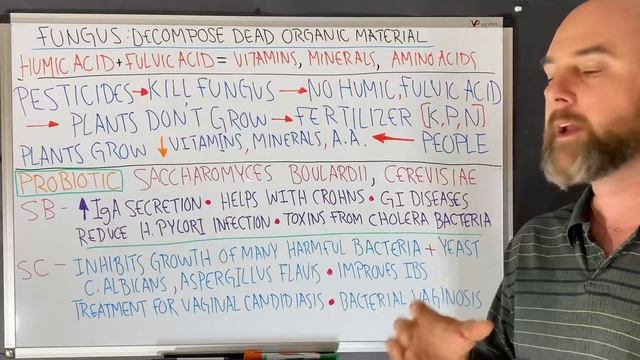 FUNGUS: DECOMPOSE DEAD ORGANIC MATERIAL
HUMIC ACID + FULVIC ACID = VITAMINS, MINERALS, AMINO ACIDS
PESTICIDES → KILL FUNGUS → NO HUMIC, FULVIC ACID
→ PLANTS DON'T GROW → FERTILIZER [K,P,N]
PLANTS GROW ↓ VITAMINS, MINERALS, A.A. ← PEOPLE
PROBIOTIC SACCHAROMYCES BOULARDII, CEREVISIAE
SB - ↑ IgA SECRETION • HELPS WITH CROHNS • GI DISEASES
REDUCE H. PYLORI INFECTION • TOXINS FROM CHOLERA BACTERIA
SC - INHIBITS GROWTH OF MANY HARMFUL BACTERIA + YEAST
C. ALBICANS, ASPERGILLUS FLAUS • IMPROVES IBS
TREATMENT FOR VAGINAL CANDIDIASIS • BACTERIAL VAGINOSIS